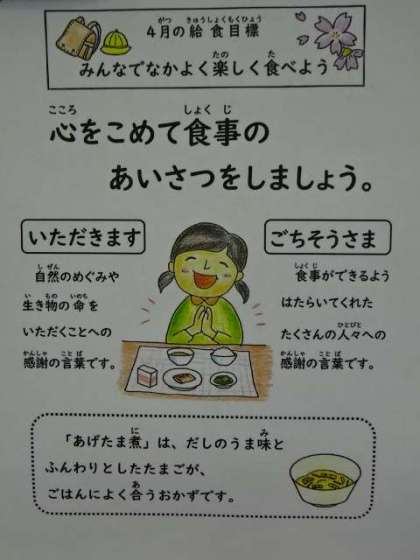 4月の給食目標
みんなでなかよく楽しく食べよう
心をこめて食事の
あいさつをしましょう。
いただきます
自然のめぐみや
生き物の命を
いただくことへの
感謝の言葉です。
ごちそうさま
食事ができるよう
はたらいてくれた
たくさんの人々への
感謝の言葉です。
「あげたま煮」は、だしのうま味と
ふんわりとしたたまごが、
ごはんによく合うおかずです。